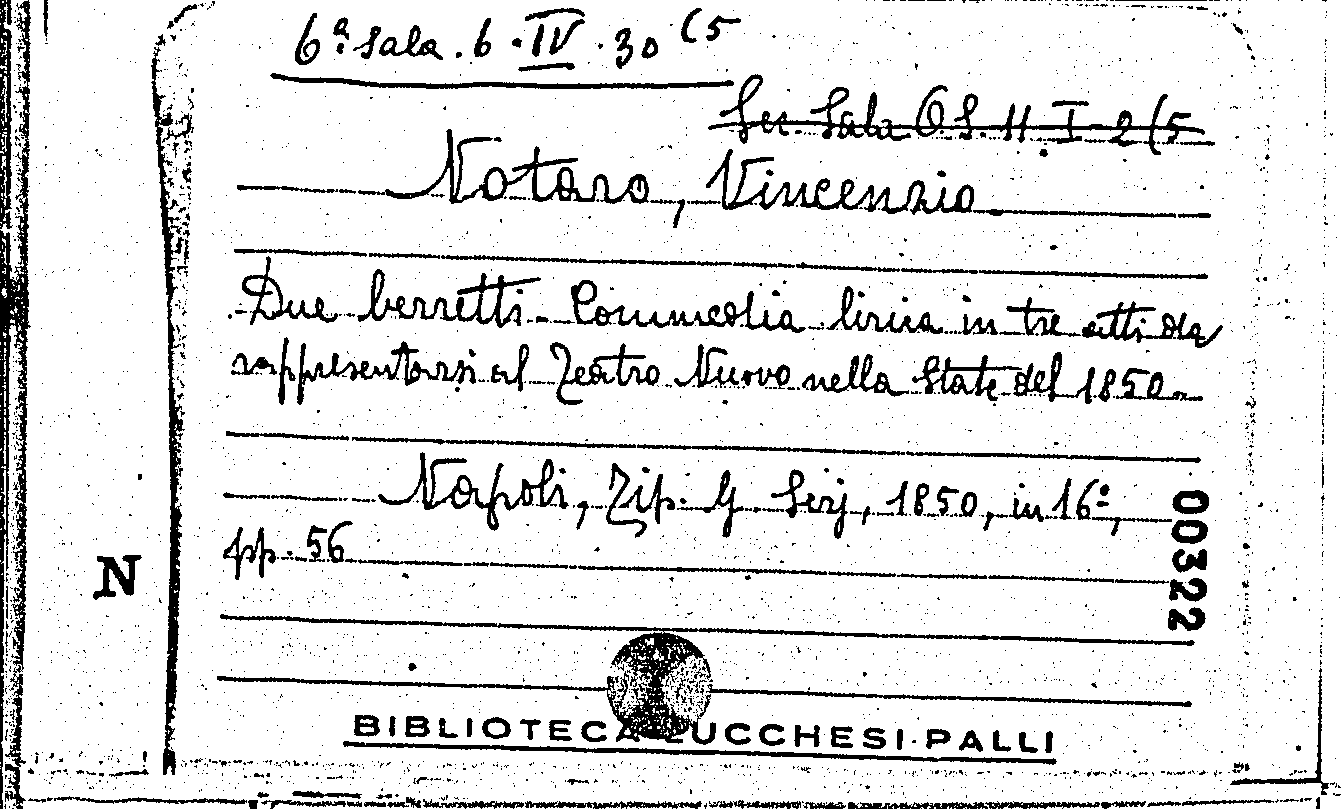 6ª Sala. 6. IV. 30 (5
Sala O S. 11. I-2 (5
Notaro, Vincenzio
Due berretti - Commedia lirica in tre atti da
rappresentarsi al Teatro Nuovo nella State del 1850.
Napoli, Tip. G. Serj, 1850, in 16º,
pp. 56
00322
N
BIBLIOTECA LUCCHESI-PALLI